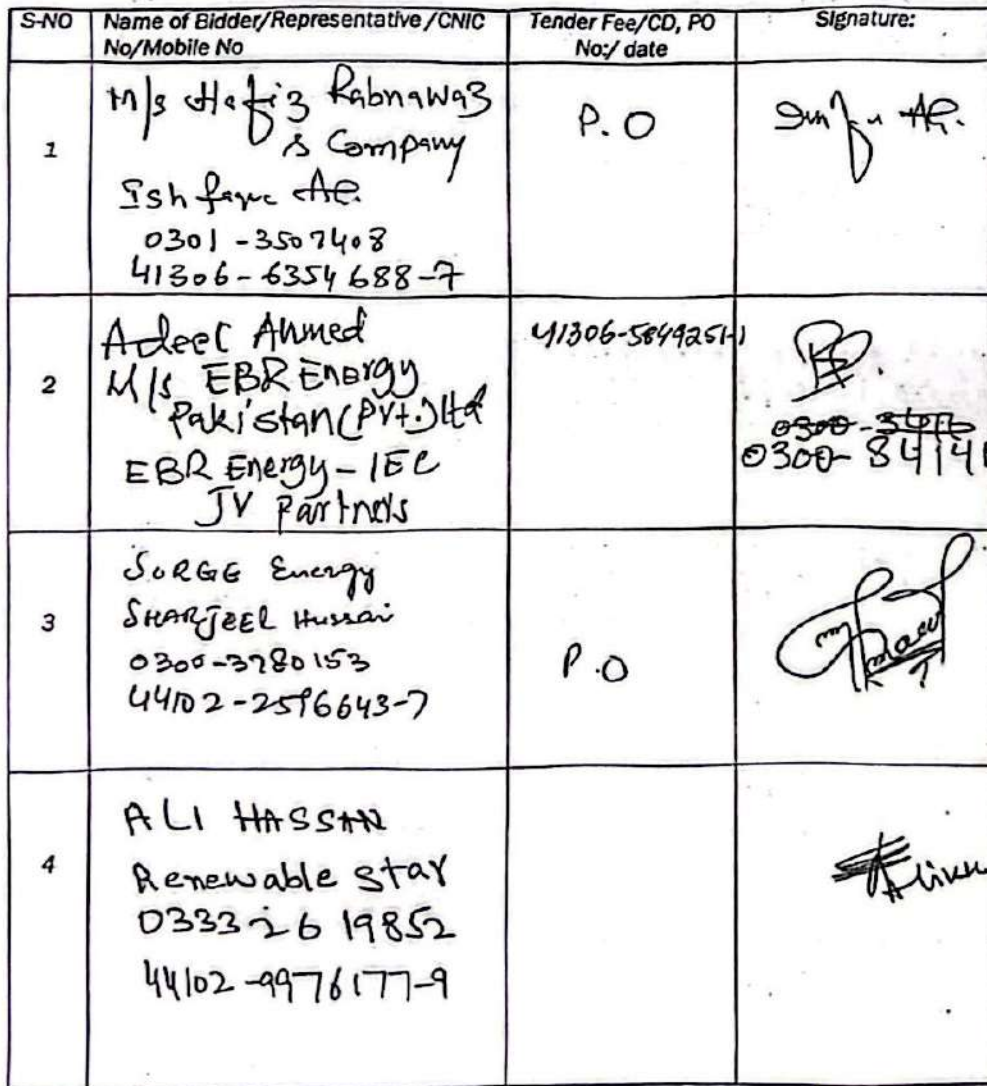 S-NO
Name of Bidder/Representative/CNIC No/Mobile No
Tender Fee/CD, PO No:/ date
Signature:
1
M/s Hafiz Rabnawaz
& Company
0301-3507408
41306-6354688-7
P.O
2
Adeel Ahmed
M/s EBR Energy
Pakistan (Pvt.) Ltd
EBR Energy - IEC
JV Partners
41306-5849251-1
0300-
0300-84141
3
SURGE Energy
SHARJEEL Hussai
0300-3780153
44102-2596643-7
P.O
4
ALI HASSAN
Renewable Star
0333-2619852
44102-9976177-9